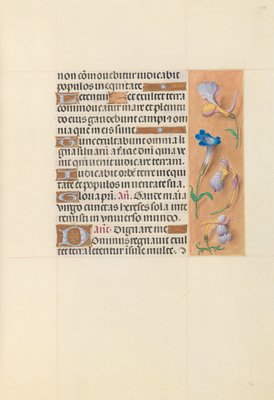 non cōmovebitur iudicabit
populos in equitate
Letentur celi et exultet terra
commoveatur mare et plenitu
do eius gaudebunt campi et om
nia que in eis sunt
Tunc exultabunt omnia li
gna silvarū a facie dn̄i quia ve
nit quū venit iudicare terram
Iudicabit orbē terre in equi
tate et populos in veritate sua
Gloria pr̄i. Añ. Gaude maria
virgo cunctas hereses sola inte
remisti in universo mundo.
Añe. Dignare me
Dominus regnavit exul
tet terra letentur insule multe.